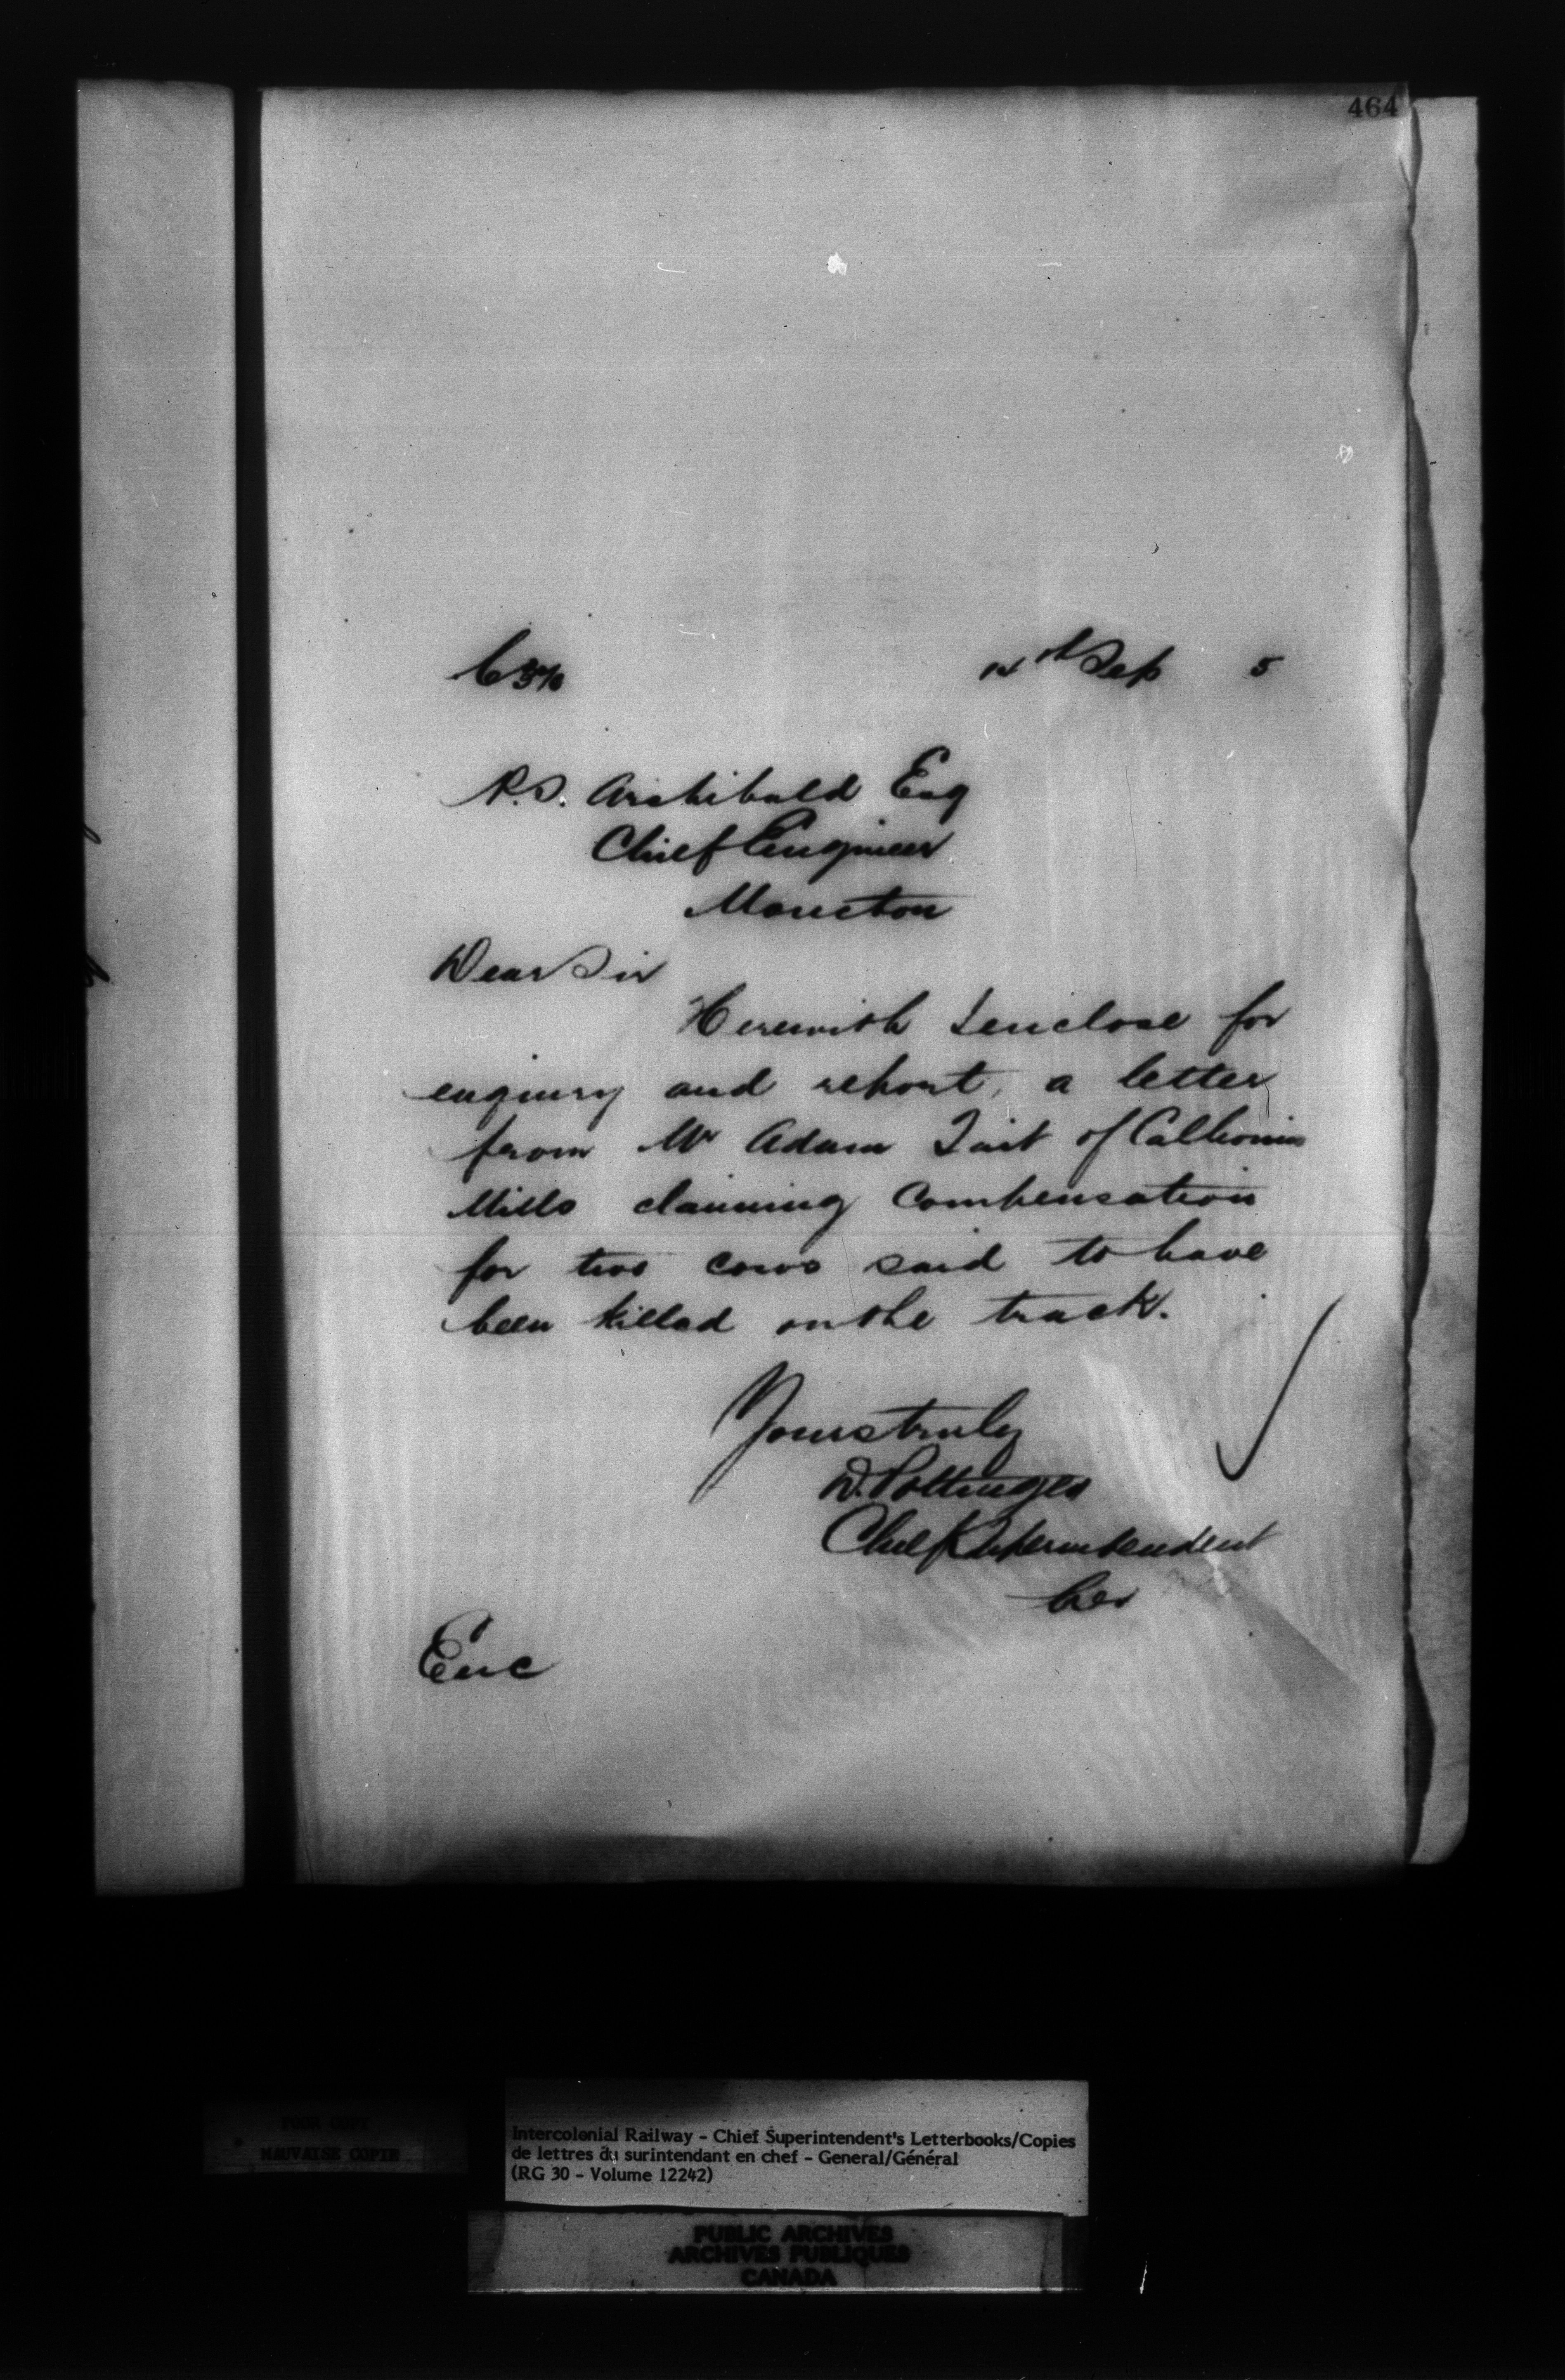 464
14th Sep 5
P.S. Archibald Esq
Chief Engineer
Moncton
Dear Sir
Herewith I enclose for
enquiry and report, a letter
from Mr Adam Tait of Calhouns
Mills claiming compensation
for two cows said to have
been killed on the track.
Yours truly
D. Pottinger
Chief Superintendent
Enc
POOR COPY
MAUVAISE COPIE
Intercolonial Railway - Chief Superintendent's Letterbooks/Copies
de lettres du surintendant en chef - General/Général
(RG 30 - Volume 12242)
PUBLIC ARCHIVES
ARCHIVES PUBLIQUES
CANADA